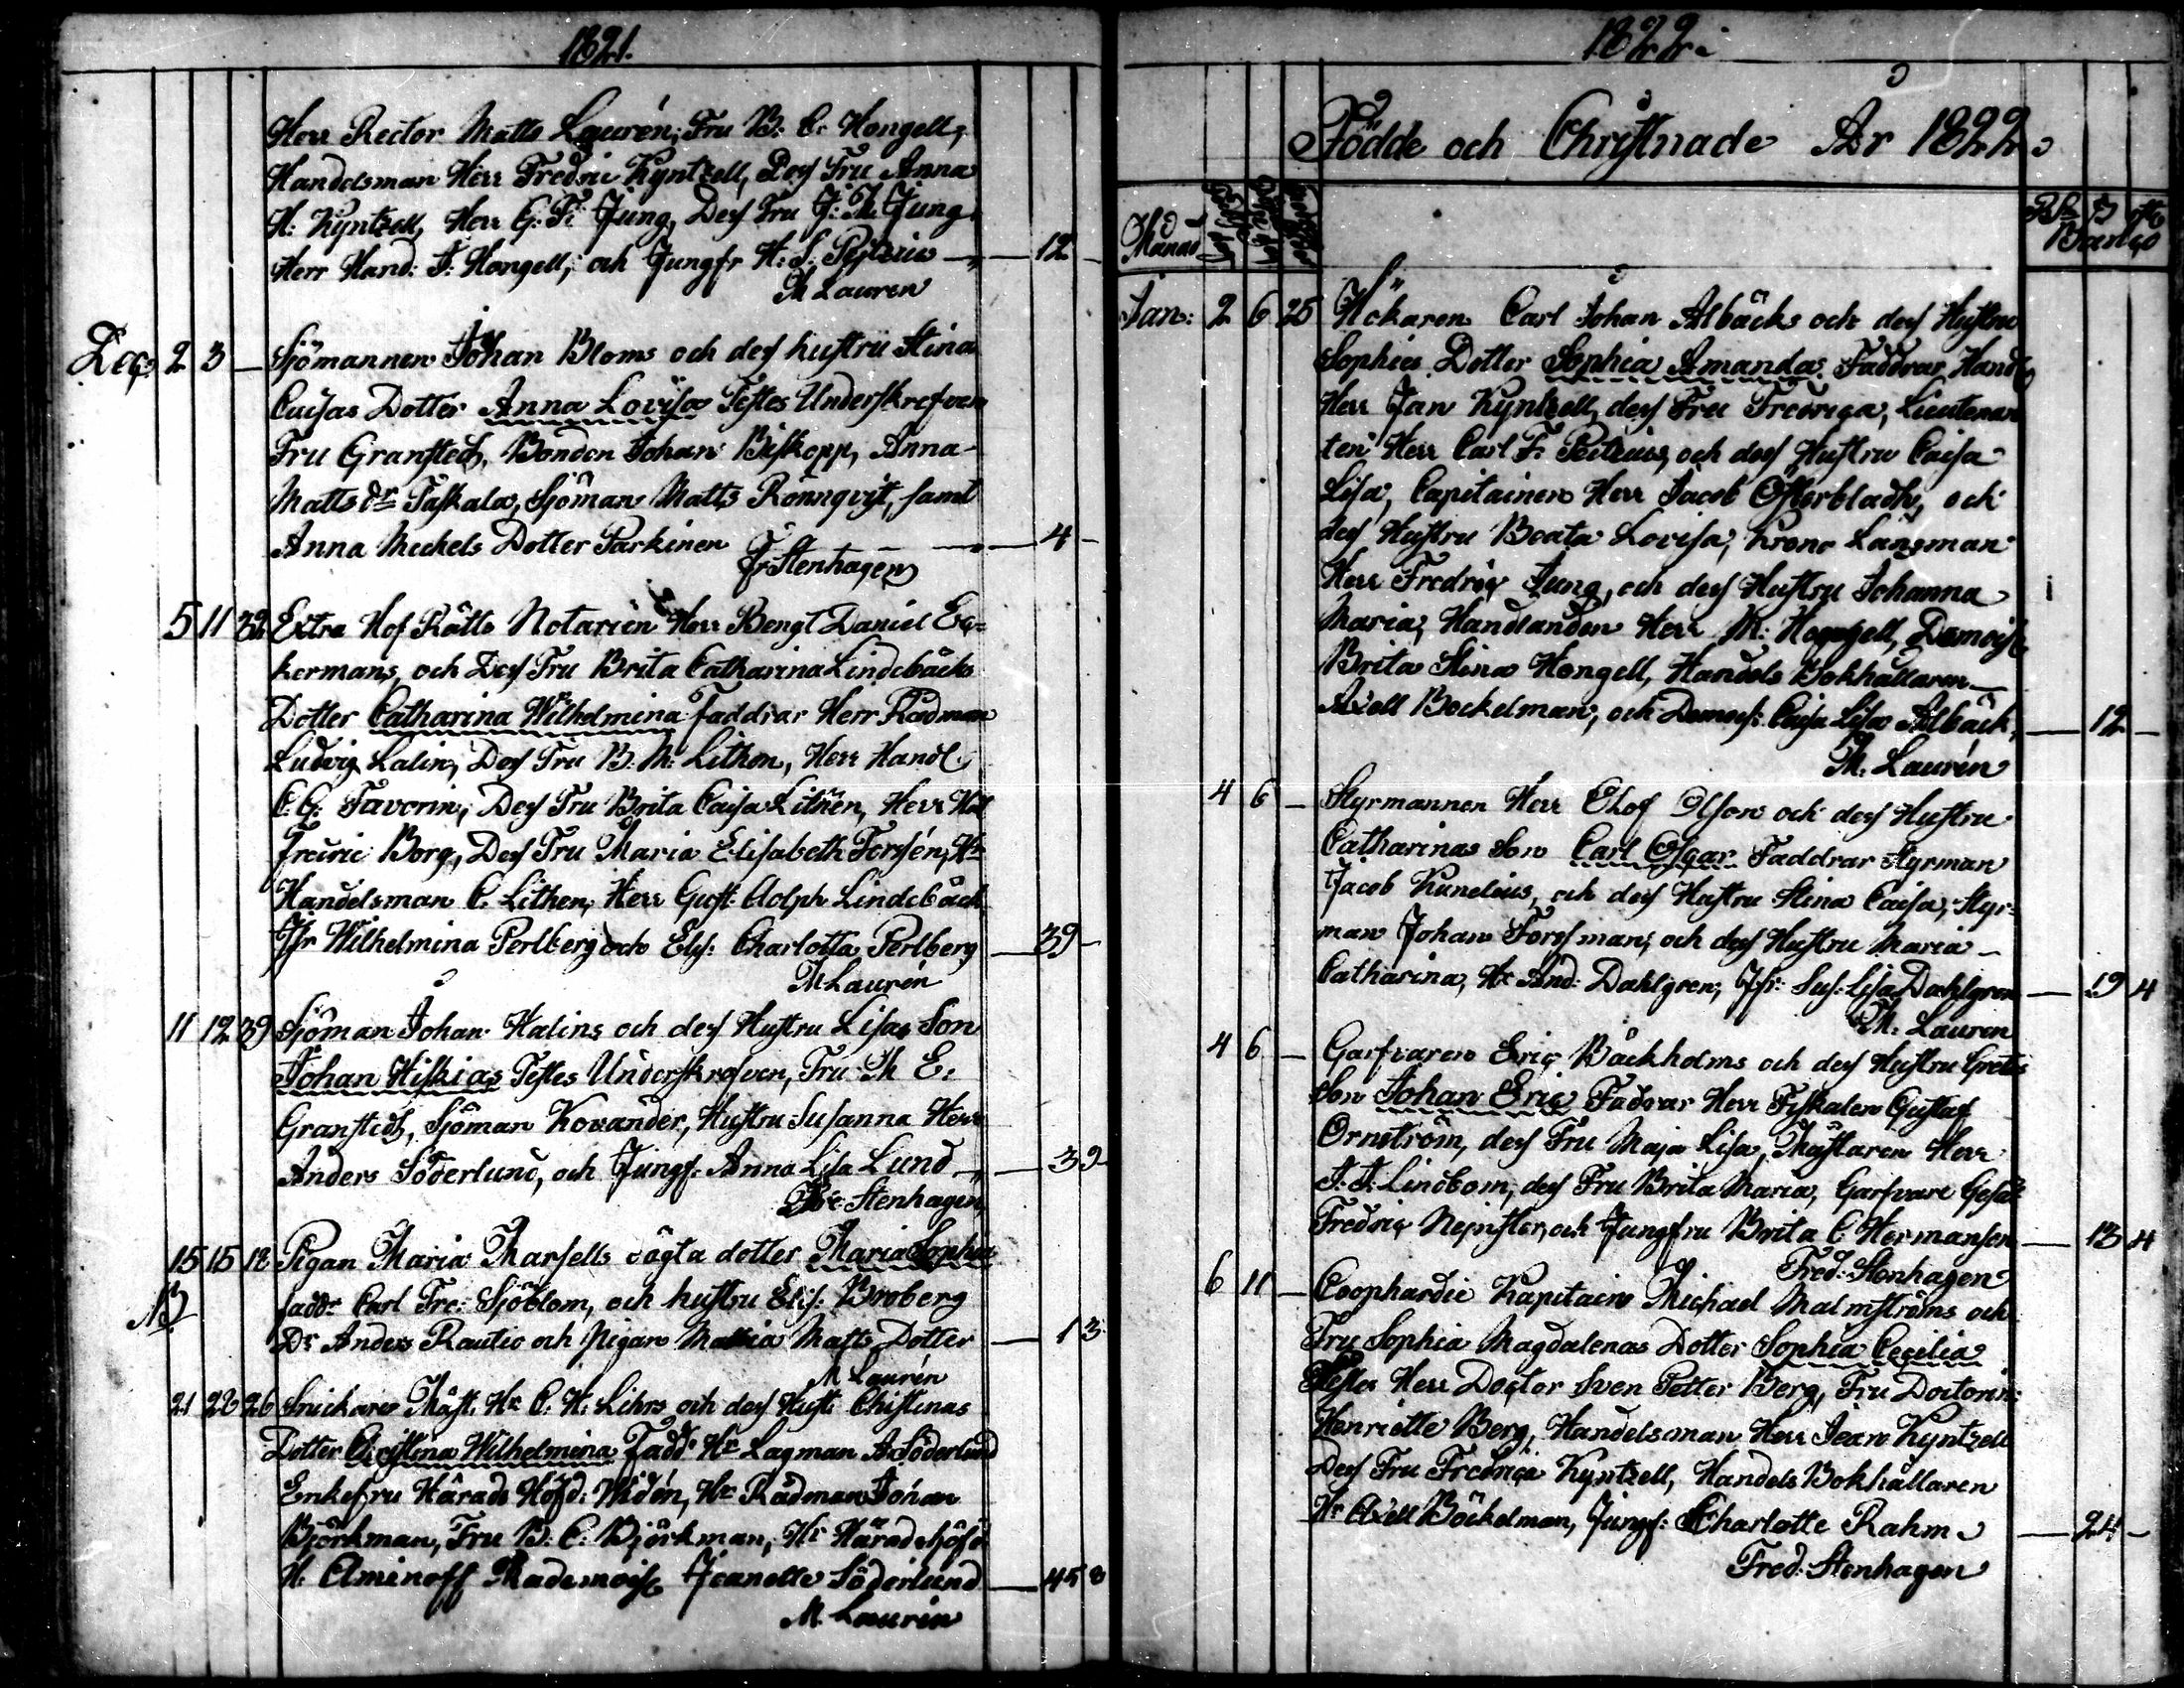 1821.
Herr Rector Matts Laurén, Fru B. C. Hongell,
Handelsman Herr Fredric Kyntzell, Dess Fru Anna
H. Kyntzell, Herr G. F. Jung, Dess Fru J. M. Jung
Herr Hand: J. Hongell, och Jungfr H. S. Peitzius — 12 —
M Lauren
Dec. 2 3 — Sjömannen Johan Bloms och dess hustru Stina
Caisas Dotter Anna Lovisa Testes Underskrefven
Fru Granstedt, Bonden Johan Biskopp, Anna
Matts dr Taskala, Sjöman Matts Rönnqvist, samt
Anna Mickels Dotter Parkinen — 4 —
Fr Stenhagen
5 11 32 Extra Hof Rätts Notarien Herr Bengt Daniel Ec-
kermans, och Dess Fru Brita Catharina Lindebäcks
Dotter Catharina Wilhelmina Faddrar Herr Rådman
Ludvig Lalin, Dess Fru B. M. Lithen, Herr Handl.
C. G. Favorin, Dess Fru Brita Caisa Lithen, Herr
Fredric Borg, Dess Fru Maria Elisabeth Forssén, Hr
Handelsman C. Lithen, Herr Gust. Adolph Lindebäck
Jfr Wilhelmina Perlberg och Els: Charlotta Perlberg — 39 —
M Laurén
11 12 39 Sjöman Johan Halins och dess Hustru Lisas Son
Johan Hiskias Testes Underskrefven, Fru M E.
Granstedt, Sjöman Kovander, Hustru Susanna Herr
Anders Söderlund, och Jungf. Anna Lisa Lund — 39
Fre Stenhagen
15 15 12 Pigan Maria Marsells oägta dotter Maria Sophia
NB fadd: Carl Fre: Sjöblom, och hustru Elis: Broberg
Dr Anders Rautio och pigan Maria Matts Dotter — 13
M Laurén
21 22 26 Snickare Mäst. Hr C. H. Lihrs och dess Hust: Christinas
Dotter Christina Wilhelmina Fadd. Hr Lagman A Söderlund
Enkefru Härads Höfd: Widén, Hr Rådman Johan
Björkman, Fru B. C. Björkman, Hr Häradshöfd
H. Aminoff Mademois Jeanette Söderlund — 45 8
M. Laurén
1822.
Födde och Christnade År 1822.
Månad
Banco
Jan: 2 6 25 Hökaren Carl Johan Albäcks och dess Hustru
Sophies Dotter Sophia Amanda Faddrar Handl
Herr Jan Kyntzell, dess Fru Fredrica, Lieutenan
ten Herr Carl F. Peitzius, och dess Hustru Caisa
Lisa, Capitainen Herr Jacob Österbladh, och
dess Hustru Beata Lovisa, Krono Länsman
Herr Fredric Jung, och dess Hustru Johanna
Maria, Handlanden Herr M. Hongell, Demois
Brita Stina Hongell, Handels Bokhållaren
Axell Bockelman, och Demois: Caisa Lisa Albäck — 12 —
M. Laurén
4 6 — Styrmannen Herr Elof Olson och dess Hustru
Catharinas Son Carl Osgar Faddrar Styrman
Jacob Kunelius, och dess Hustru Stina Caisa, Styr-
man Johan Forssman, och dess Hustru Maria
Catharina, Hr And: Dahlgren, Jfr: Sus: Lisa Dahlgren — 19 4
M. Lauren
4 6 — Garfvaren Eric Bäckholms och dess Hustru Gretes
Son Johan Eric Fadrar Herr Fiskalen Gustaf
Ornström, dess Fru Maja Lisa, Mästaren Herr
J. J. Lindbom, dess Fru Brita Maria, Garfvare Gesäll
Fredric och Jungfru Brita C Hermanson — 13 4
Fred: Stenhagen
6 11 — Coophardie Kapitain Michael Malmströms och
Fru Sophia Magdalenas Dotter Sophia Cecilia
Testes Herr Doctor Sven Petter Berg, Fru Doctorin:
Henriette Berg, Handelsman Herr Jean Kyntzell
Dess Fru Fredrica Kyntzell, Handels Bokhållaren
Hr Axell Böckelman, Jungf: Charlotte Rahm — 24 —
Fred. Stenhagen